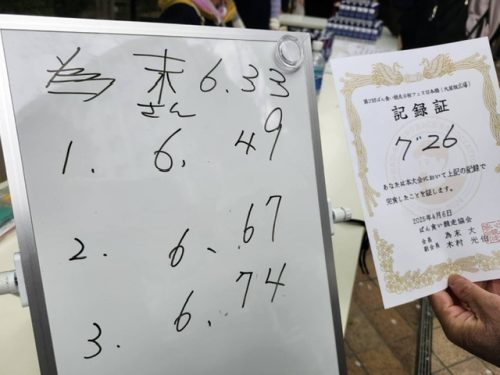 為末 6.33
さん
1. 6.49
2. 6.67
3. 6.74
記録証
7"26
あなたは本大会において上記の記録で
完食したことを証します。
2025年4月6日
ぱん食い競走協会
会長 為末 大
副会長 木村 光伯